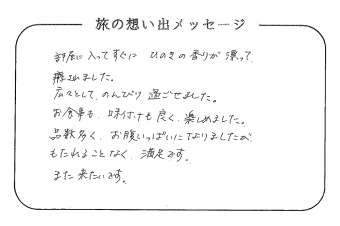 旅の想い出メッセージ
部屋に入ってすぐに ひのきの香りが漂って、
癒されました。
広々として、のんびり過ごせました。
お食事も、味付けも良く、楽しめました。
品数多く、お腹いっぱいになりましたが、
もたれることなく、満足です。
また来たいです。